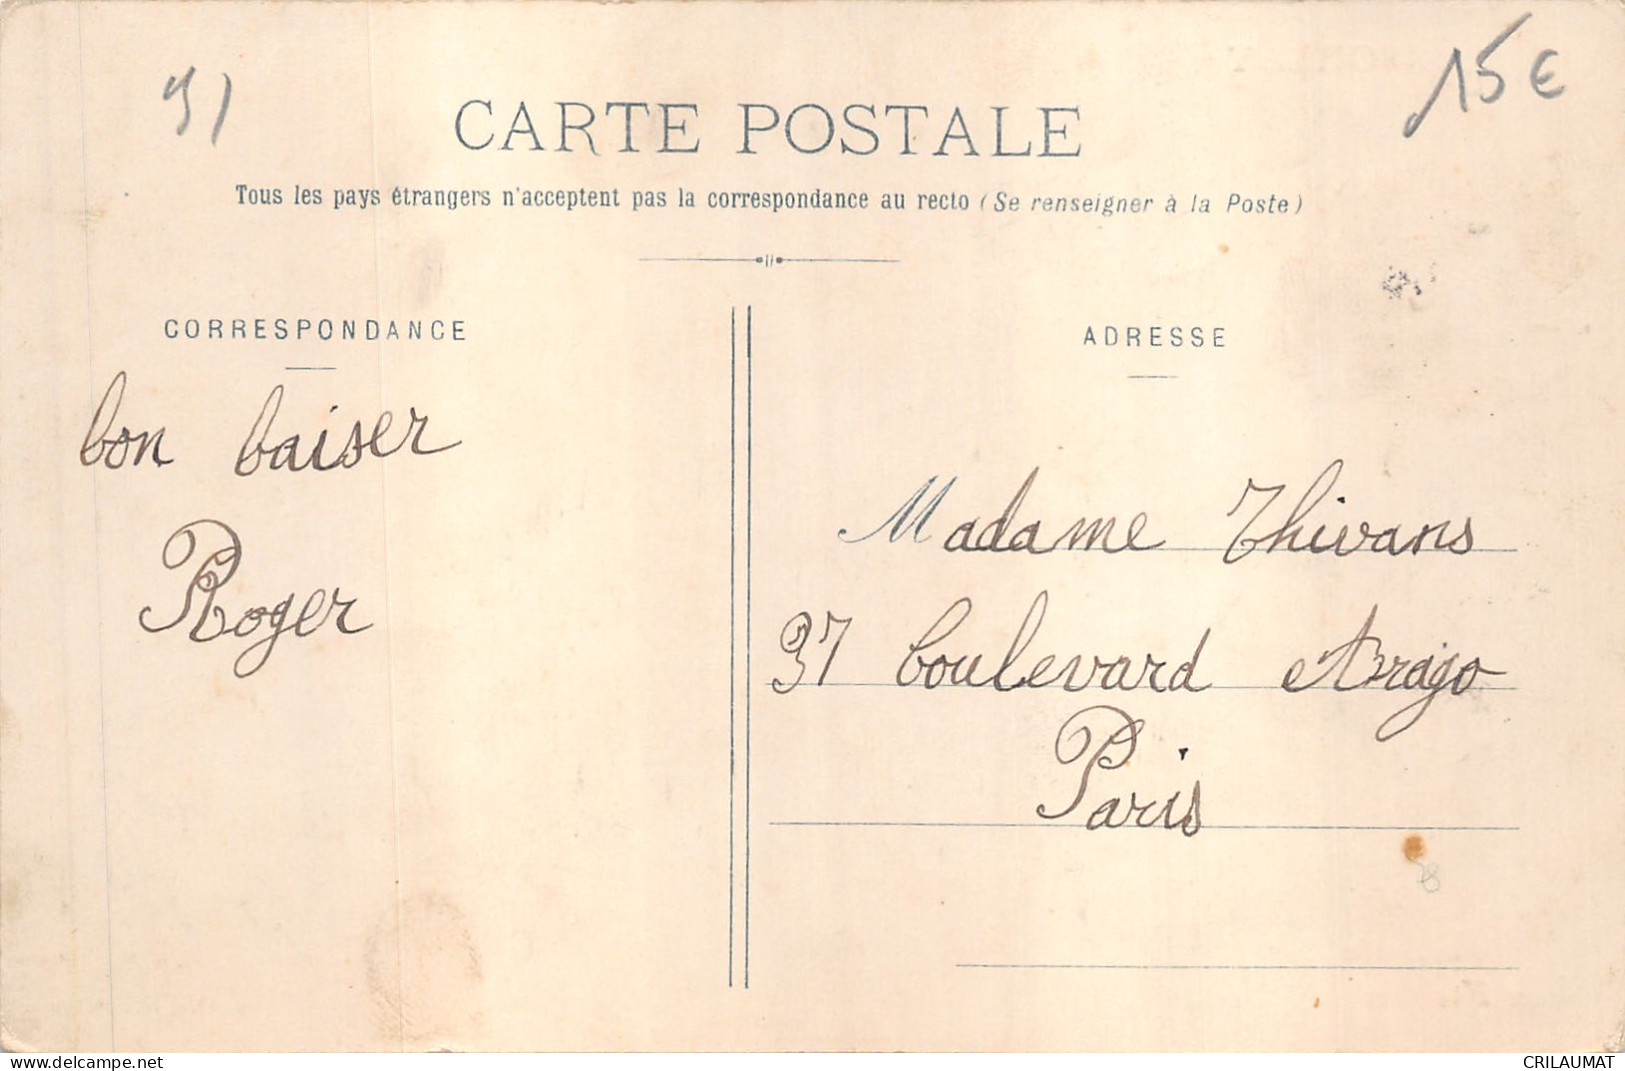 91
15 €
CARTE POSTALE
Tous les pays étrangers n'acceptent pas la correspondance au recto (Se renseigner à la Poste)
CORRESPONDANCE
bon baiser
Roger
ADRESSE
Madame Thivans
37 boulevard Arago
Paris
www.delcampe.net
CRILAUMAT